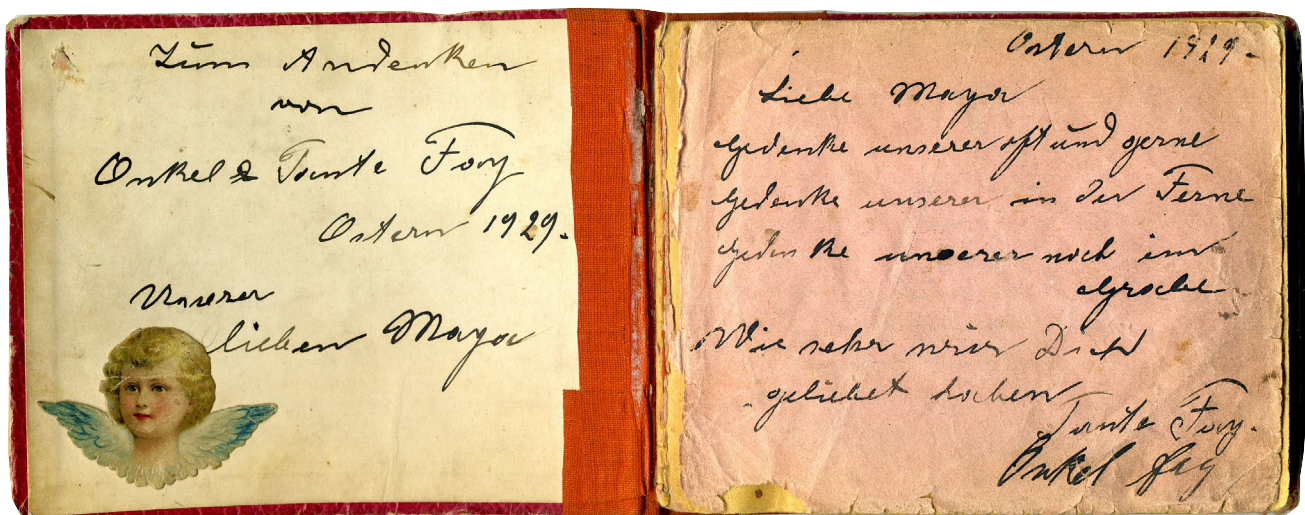 Zum Andenken
von
Onkel & Tante Fay
Ostern 1929.
Unserer
lieben Maya
Ostern 1929-
Liebe Maya
Gedenke unserer oft und gerne
Gedenke unserer in der Ferne
Gedenke unserer noch im
Grabe
Wie sehr wir Dich
geliebet haben
Tante Fay.
Onkel Fay